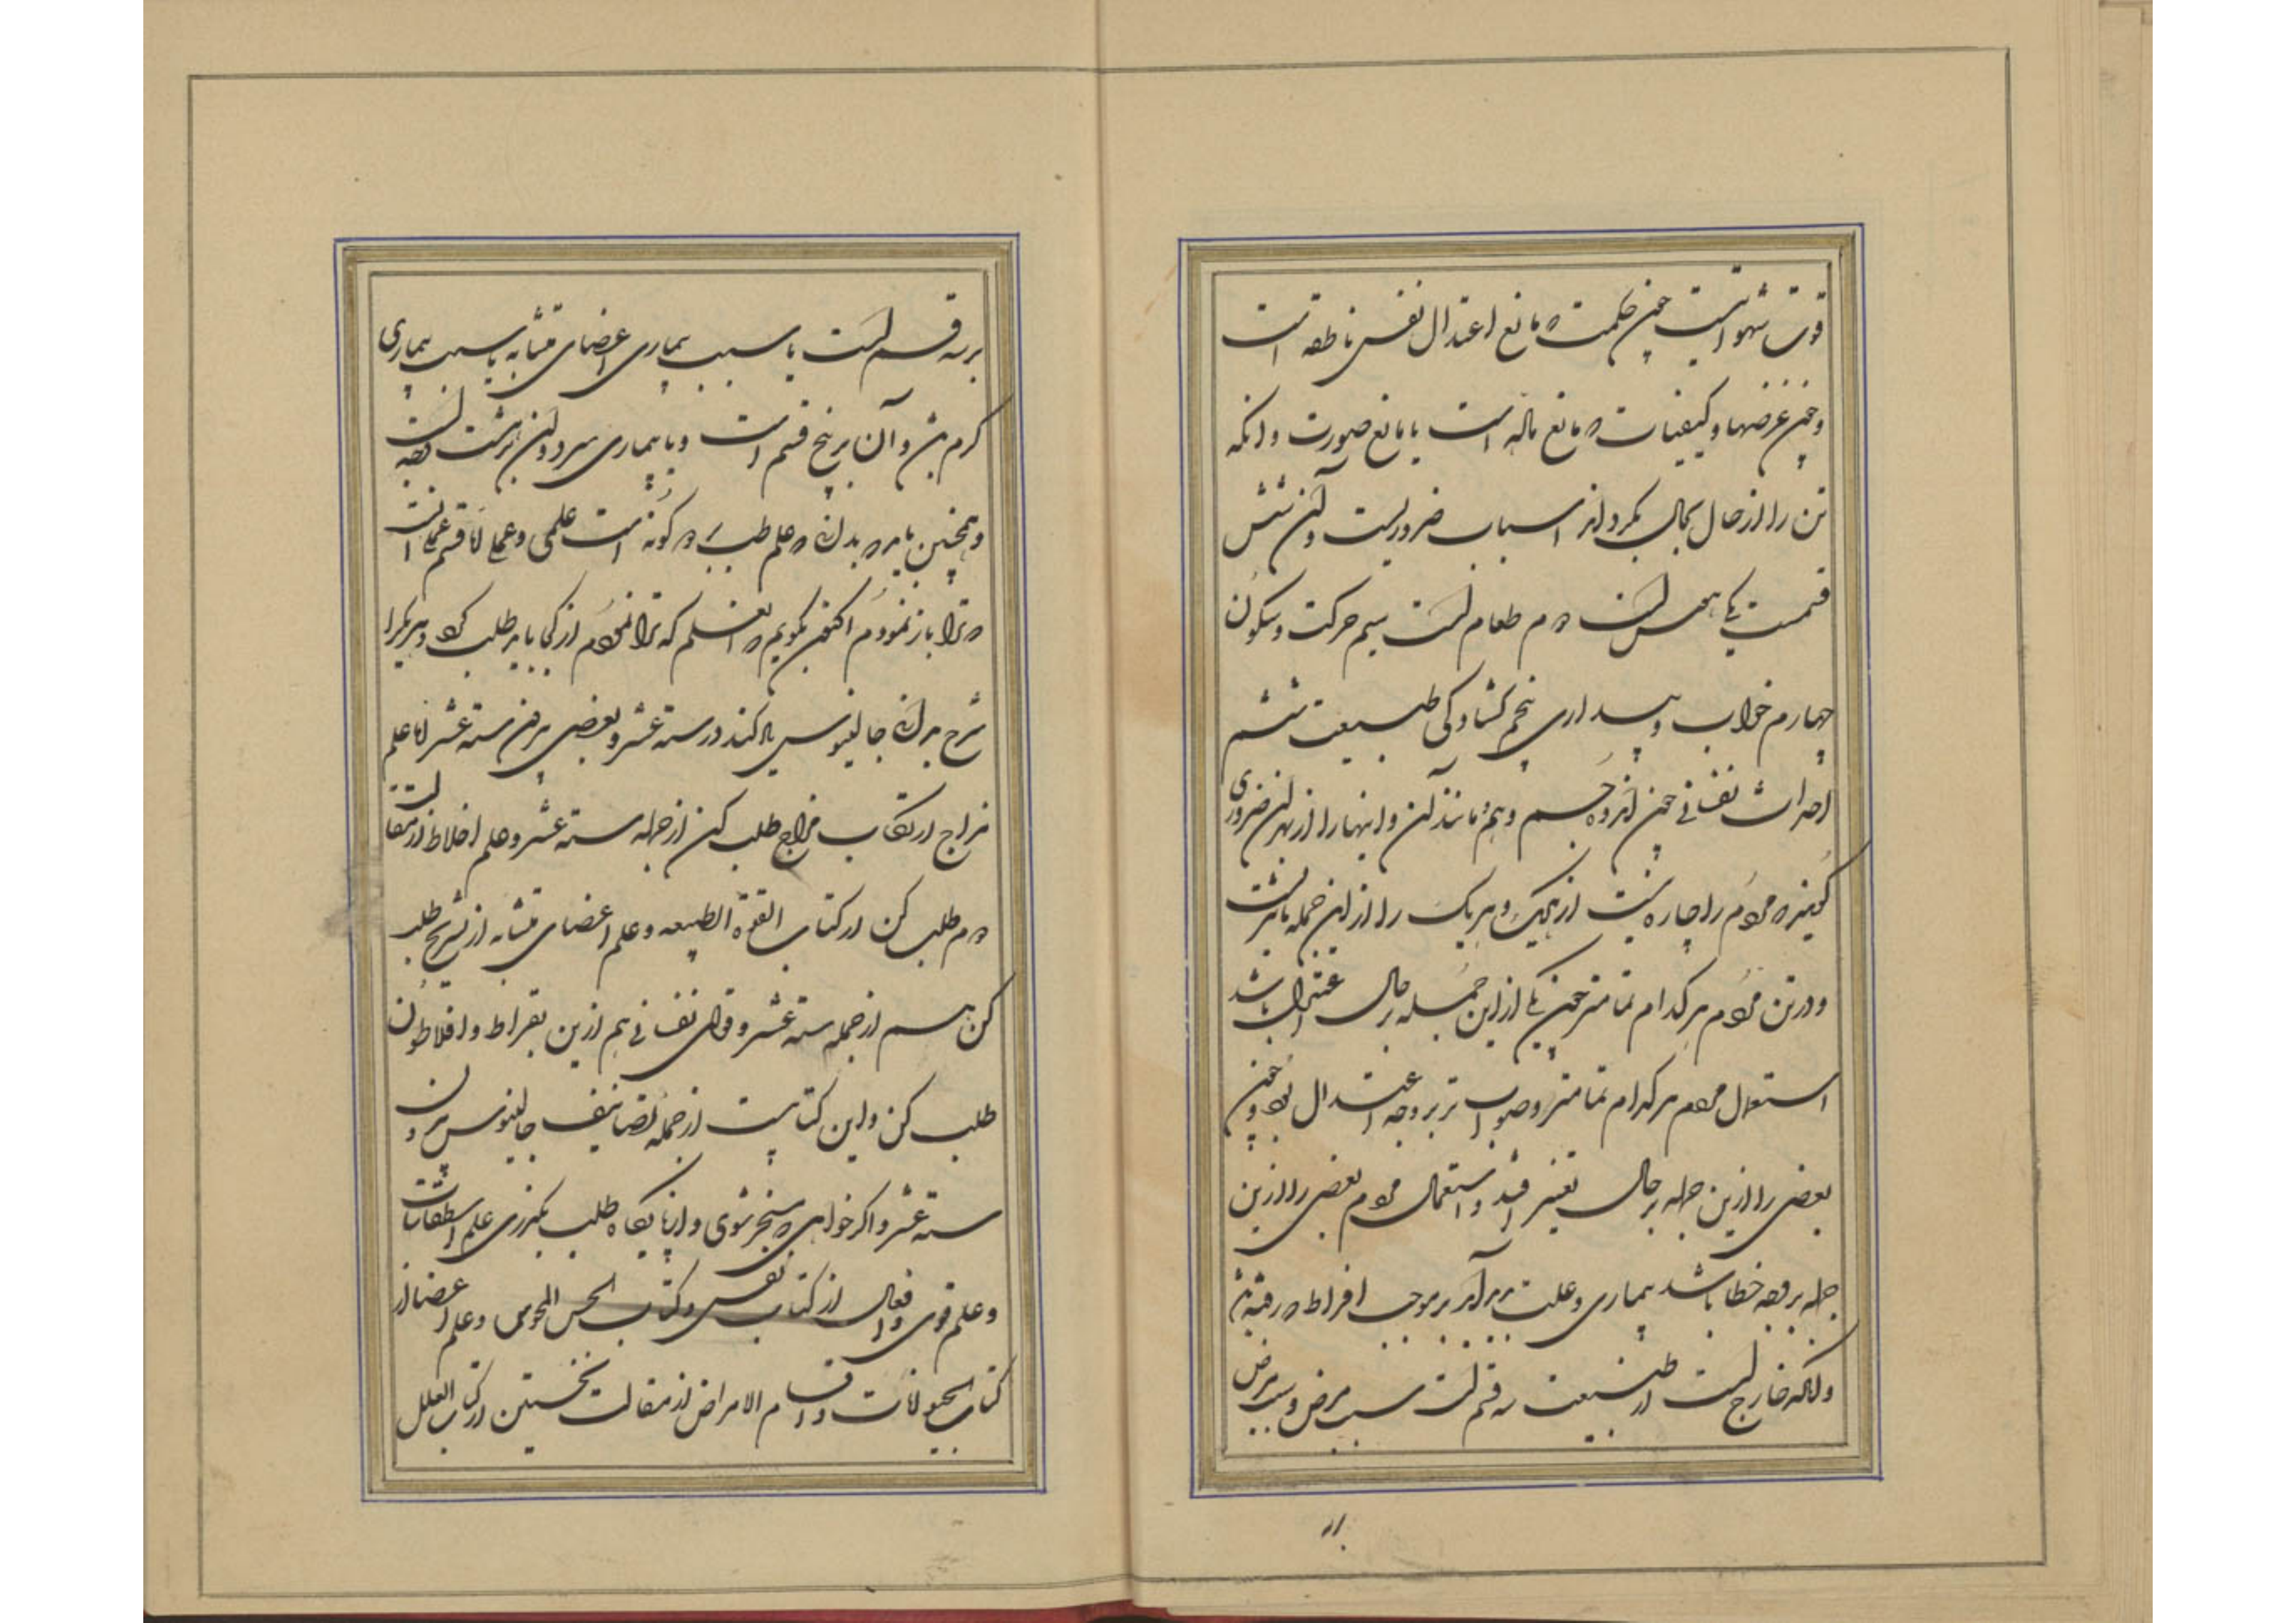 قوت شهوانیست چون حکمت که مانع اعتدال نفس ناطقه است
و چون غرضها و کیفیات که مانع ماله است یا مانع صورت و آنکه
تن را از حال بحال بگرداند اسباب ضروریست و آن شش
قسمست یکی هوا است دوم طعام است سیم حرکت و سکون
چهارم خواب و بیداری پنجم گشادگی طبیعت ششم
احداث نفسانی چون اندوه و خشم و هم مانند آن و اینها را از بهر آن ضروری
گویند که مردم را چاره نیست از هر یک و هر یک را ازین جمله تاثیریست
و در تن مردم هر کدام تمامتر چون یکی ازین جمله بر حال اعتدال باشد
استعمال مردم هر کدام تمامتر و صوابتر بر وجه اعتدال بود و چون
بعضی را ازین جمله بر حال تغییر افتد و استعمال مردم بعضی را ازین
جمله بر وجه خطا باشد بیماری و علت پدید آید بر موجب افراط که رفته باشد
و آنکه خارج است از طبیعت سه قسم است سبب مرض و سبب مرض
بر سه قسم است یا سبب بیماری اعضای متشابه یا سبب بیماری
گرم باشد و آن بر پنج قسم است و یا بیماری سرد و آن بر هشت
و همچنین باید که بدانی که علم طب بر دو گونه است علمی و عملی اما قسم عملی آنست
که ترا باز نمودم اکنون بگویم که این علم که ترا نمودم از کجا باید طلب کرد و هر یکرا
شرح بدانکه جالینوس یاد کند در سته عشر و بعضی بیرون سته عشر اما علم
مزاج از کتاب مزاج طلب کن از جمله سته عشر و علم اخلاط از مقالت
دوم طلب کن از کتاب القوة الطبیعه و علم اعضای متشابه از تشریح طلب
کن هم از جمله سته عشر و قوای نفسانی هم ازین بقراط و افلاطون
طلب کن و این کتابیست از جمله تصانیف جالینوس بیرون
سته عشر و اگر خواهی که متبحر شوی و از پایگاه طلب بگذری علم اسطقسات
و علم قوی و افعال از کتاب نفس و کتاب الحس المحسوس و علم اعضا از
کتاب الحیوانات و اقسام الامراض از مقالت نخستین از کتاب العلل